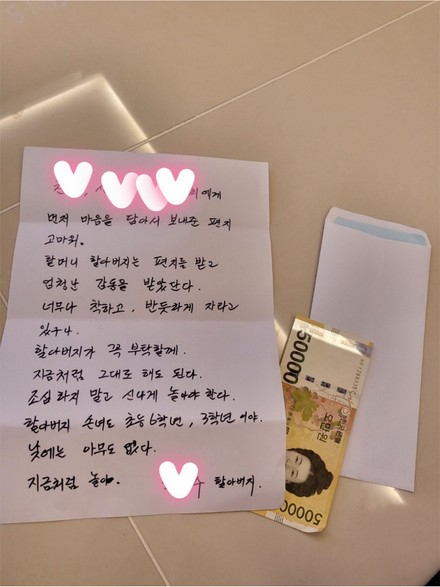 에게
먼저 마음을 담아서 보내준 편지
고마워.
할머니 할아버지는 편지를 받고
엄청난 감동을 받았단다.
너무나 착하고, 반듯하게 자라고
있구나.
할아버지가 꼭 부탁할께.
지금처럼 그대로 해도 된다.
조심하지 말고 신나게 놀아야 한다.
할아버지 손녀도 초등 6학년, 3학년 이야.
낮에는 아무도 없다.
지금처럼 놀아.
할아버지.
50000
오만원
50000